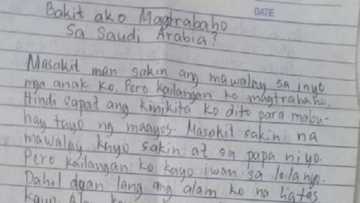 Bakit ako Magtrabaho
DATE
Sa Saudi Arabia?
Masakit man sakin ang mawalay sa inyo
mga anak ko. Pero kailangan ko magtrabaho.
Hindi sapat ang kinikita ko dito para mabu-
hay tayo ng maayos. Masakit sakin na
mawalay kayo sakin at sa papa niyo.
Pero kailangan ko kayo iwan sa lola nyo.
Dahil doon lang ang alam ko na ligtas
kayo. Alam ko